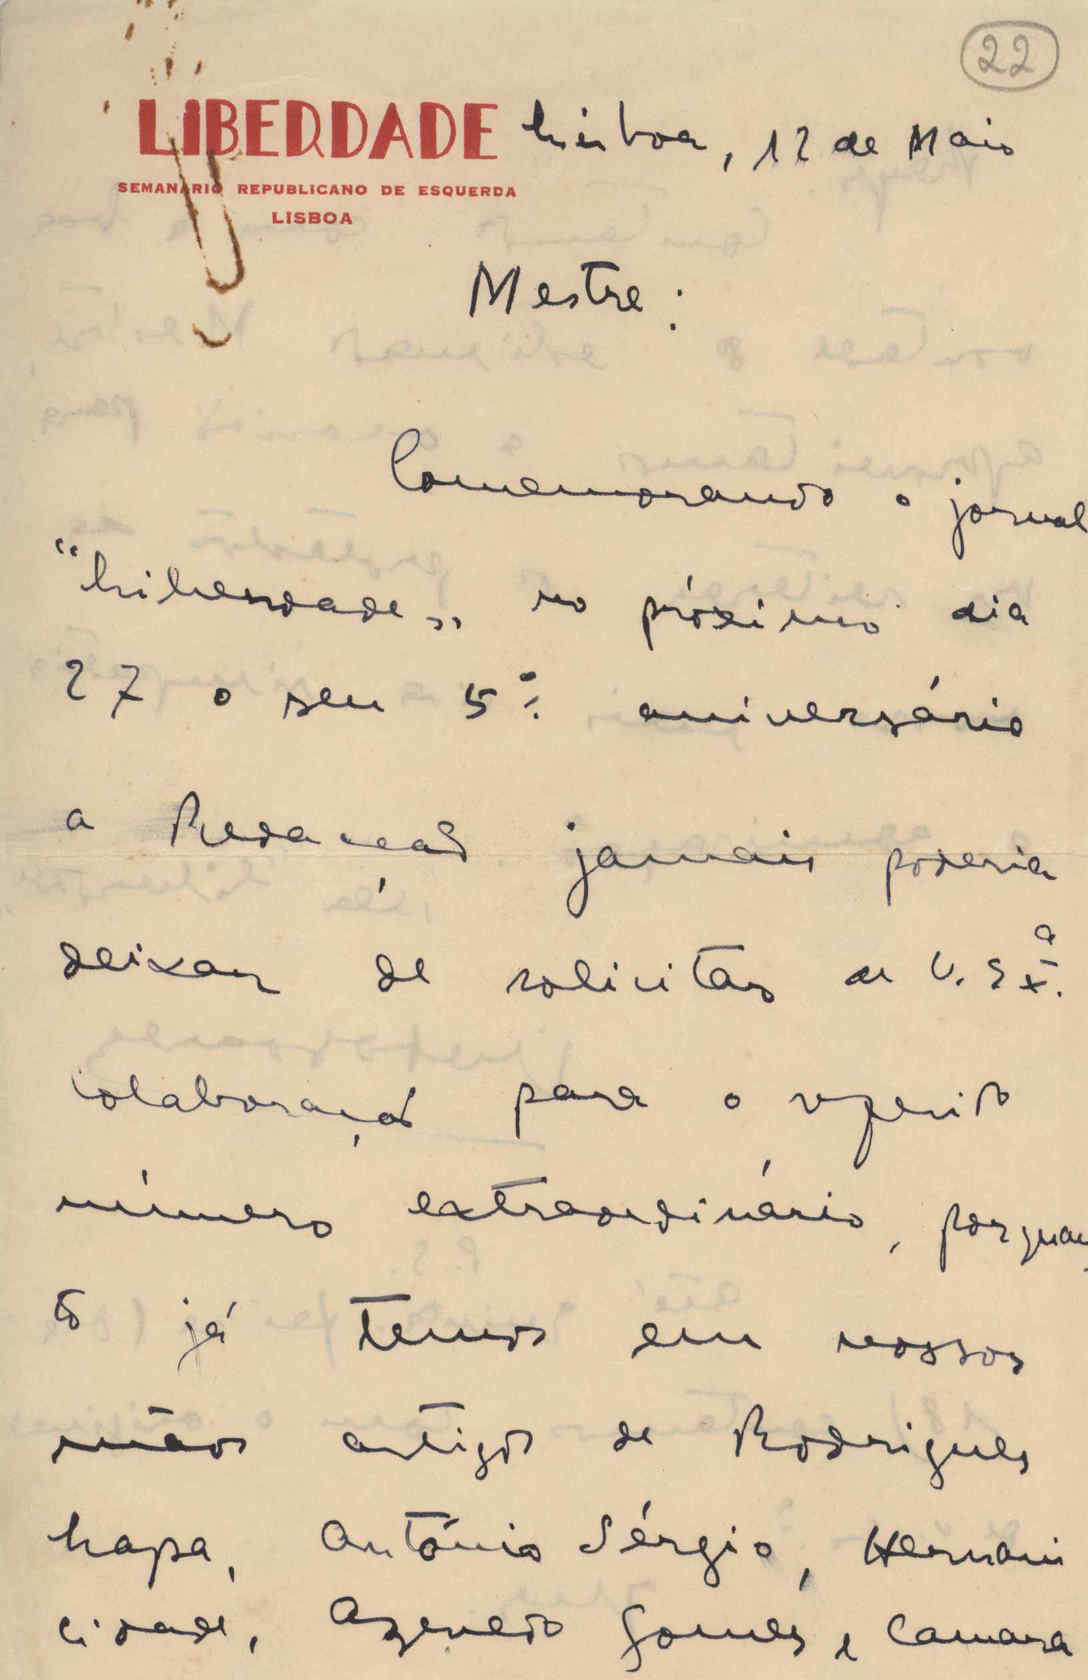 22
LIBERDADE
Lisboa, 12 de Maio
SEMANÁRIO REPUBLICANO DE ESQUERDA
LISBOA
Mestre:
Comemorando o jornal
"Liberdade„ no próximo dia
27 o seu 5º. aniversário
a Redacção jamais poderia
deixar de solicitar de V. Exª.
colaboração para o referido
número extraordinário, porquan
to já temos em nossos
mãos artigos de Rodrigues
Lapa, António Sérgio, Hernani
Cidade, Azevedo Gomes e Camara